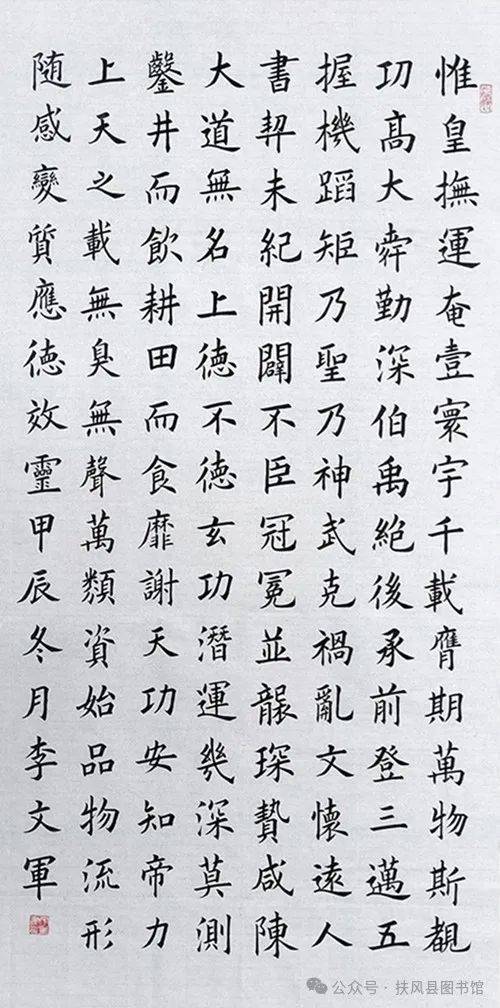 惟皇撫運奄壹寰宇千載膺期萬物斯覩
功高大舜勤深伯禹絶後承前登三邁五
握機蹈矩乃聖乃神武克禍亂文懷遠人
書契未紀開闢不臣冠冕並襲琛贄咸陳
大道無名上德不德玄功潛運幾深莫測
鑿井而飲耕田而食靡謝天功安知帝力
上天之載無臭無聲萬類資始品物流形
随感變質應德效靈甲辰冬月李文軍
公众号·扶风县图书馆